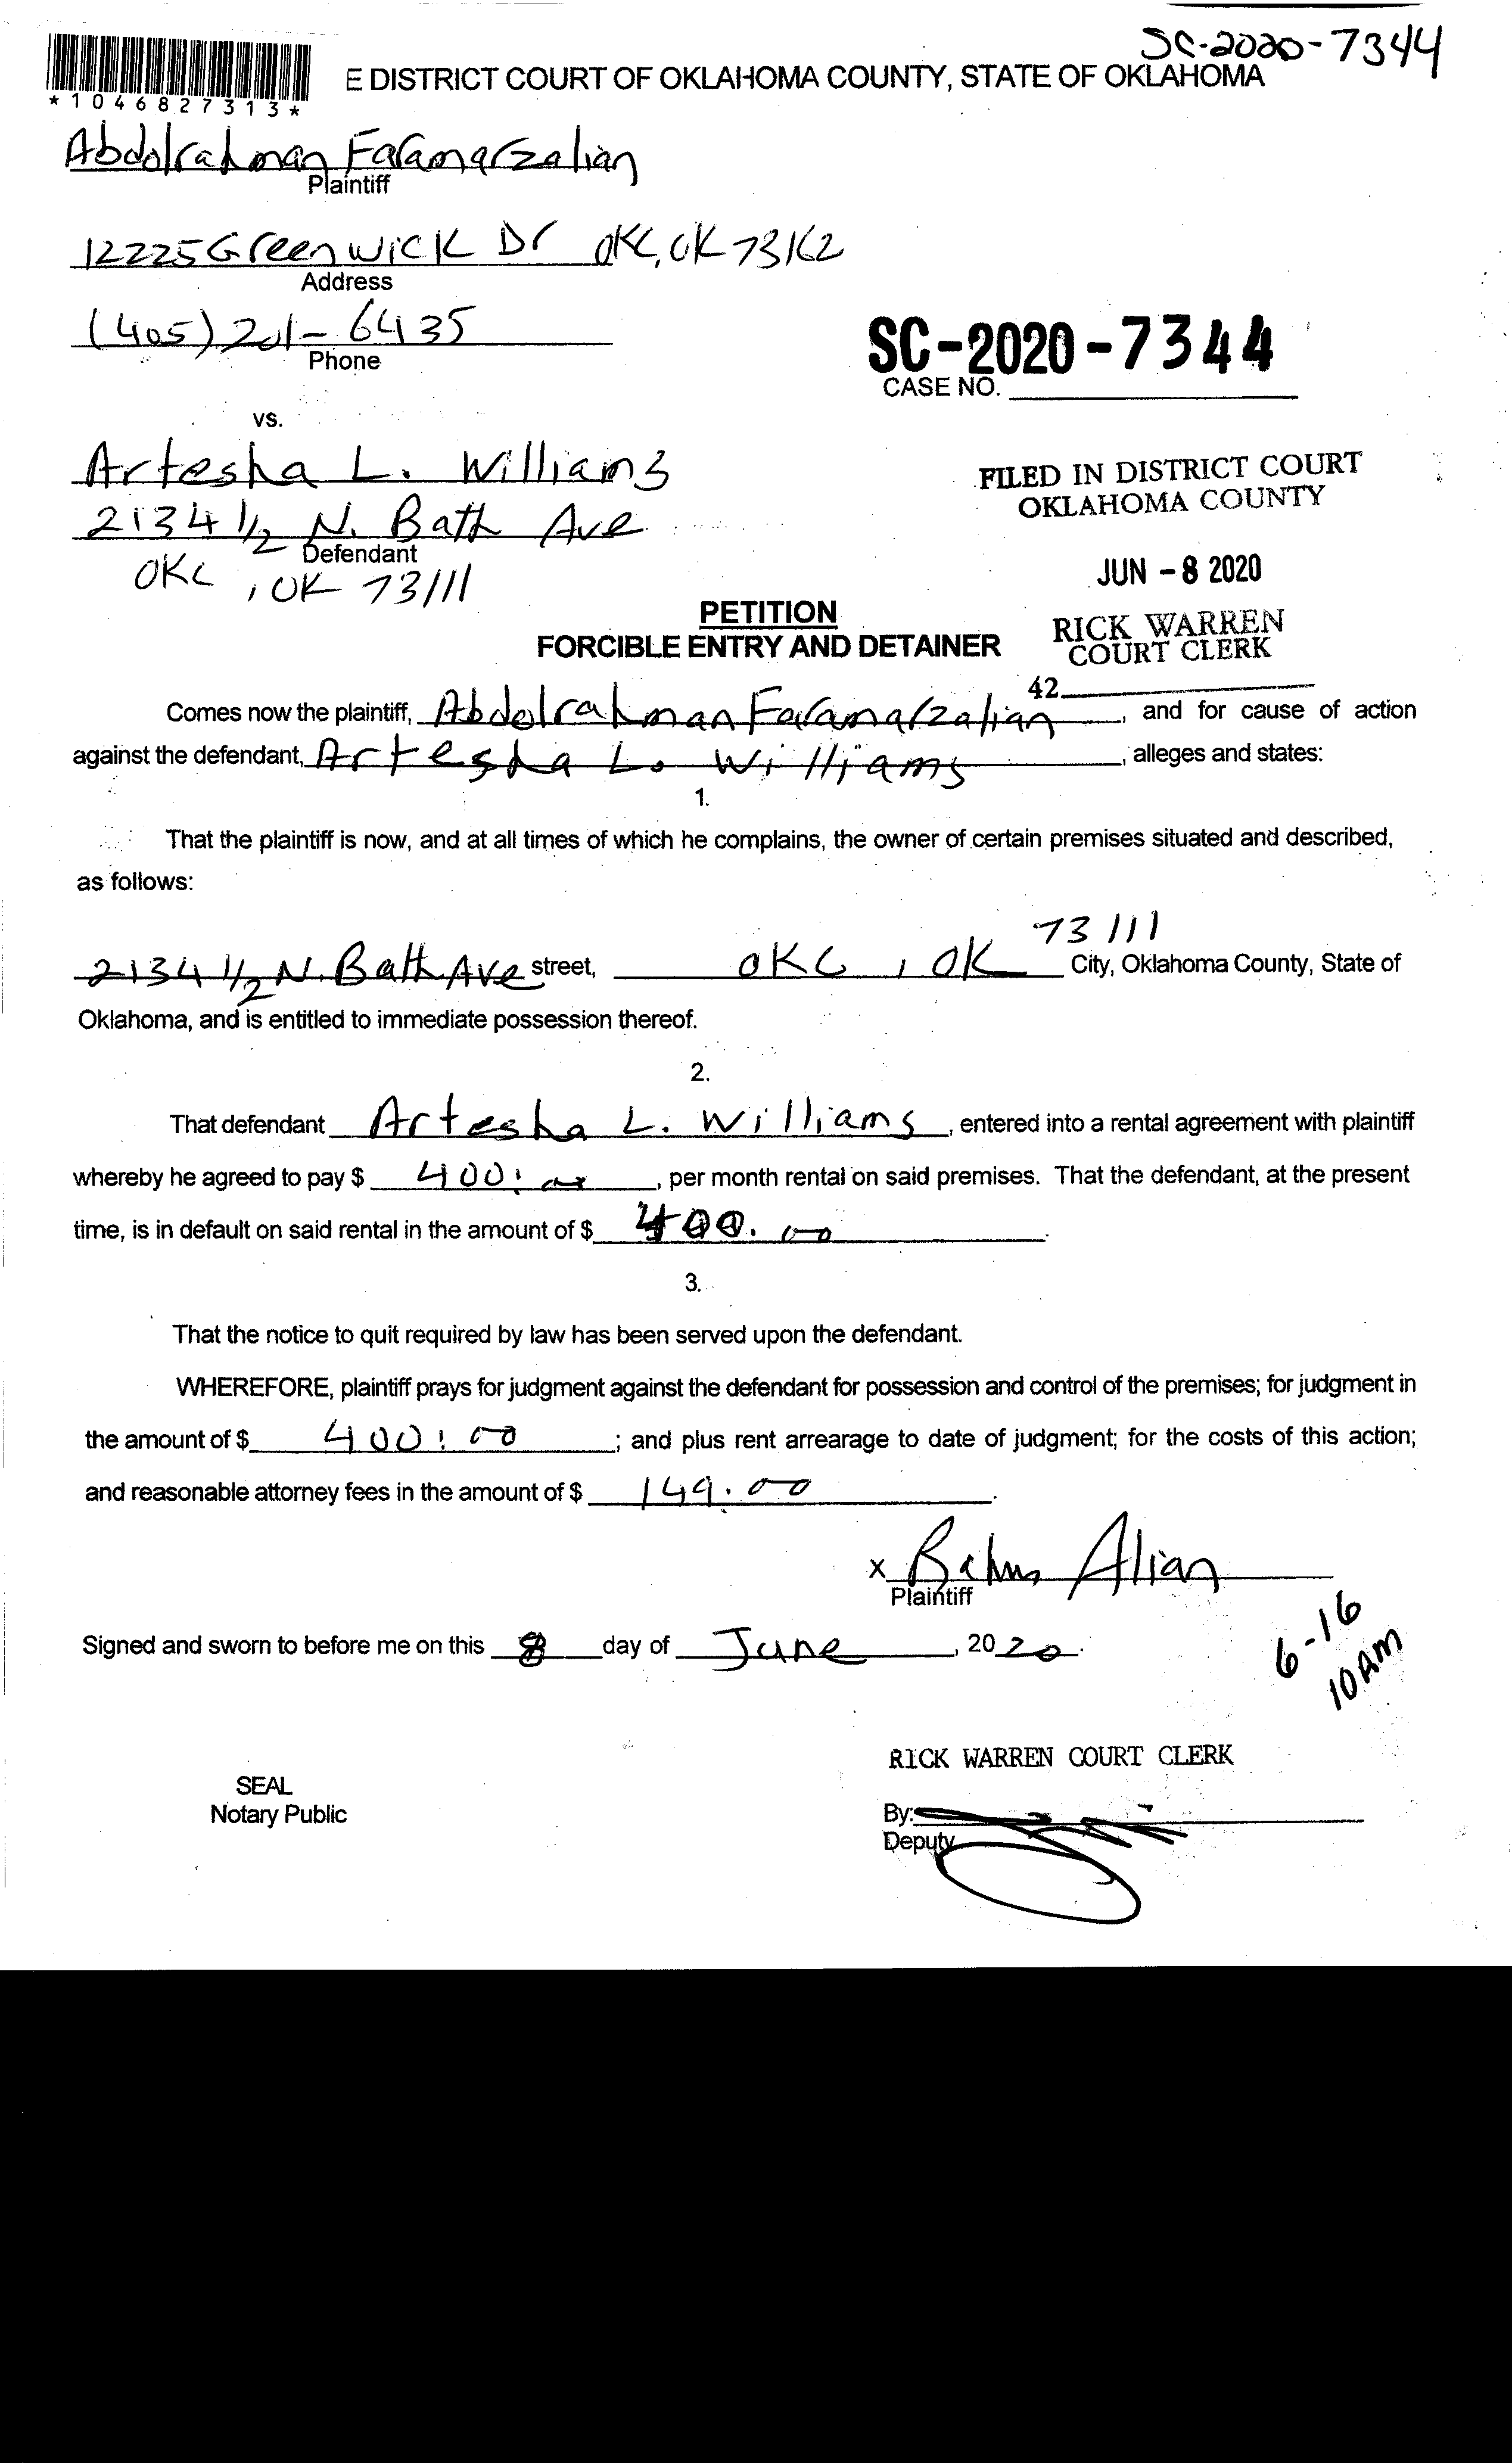 SC-2020-7344
E DISTRICT COURT OF OKLAHOMA COUNTY, STATE OF OKLAHOMA
*1046827313*
Abdolrahman Faramarzalian
Plaintiff
12225 Greenwick Dr OKC, OK 73162
Address
(405) 201-6435
Phone
SC-2020-7344
CASE NO.
vs.
Artesha L. Williams
2134 1/2 N. Bath Ave
Defendant
OKC, OK 73111
FILED IN DISTRICT COURT
OKLAHOMA COUNTY
JUN -8 2020
RICK WARREN
COURT CLERK
42
PETITION
FORCIBLE ENTRY AND DETAINER
Comes now the plaintiff, Abdolrahman Faramarzalian, and for cause of action
against the defendant, Artesha L. Williams, alleges and states:
1.
That the plaintiff is now, and at all times of which he complains, the owner of certain premises situated and described,
as follows:
2134 1/2 N. Bath Ave street, OKC, OK 73111 City, Oklahoma County, State of
Oklahoma, and is entitled to immediate possession thereof.
2.
That defendant Artesha L. Williams, entered into a rental agreement with plaintiff
whereby he agreed to pay $ 400.00, per month rental on said premises. That the defendant, at the present
time, is in default on said rental in the amount of $ 400.00.
3.
That the notice to quit required by law has been served upon the defendant.
WHEREFORE, plaintiff prays for judgment against the defendant for possession and control of the premises; for judgment in
the amount of $ 400.00; and plus rent arrearage to date of judgment; for the costs of this action;
and reasonable attorney fees in the amount of $ 149.00.
x Alian
Plaintiff
Signed and sworn to before me on this 8 day of June, 2020.
6-16
10AM
RICK WARREN COURT CLERK
SEAL
Notary Public
By:
Deputy